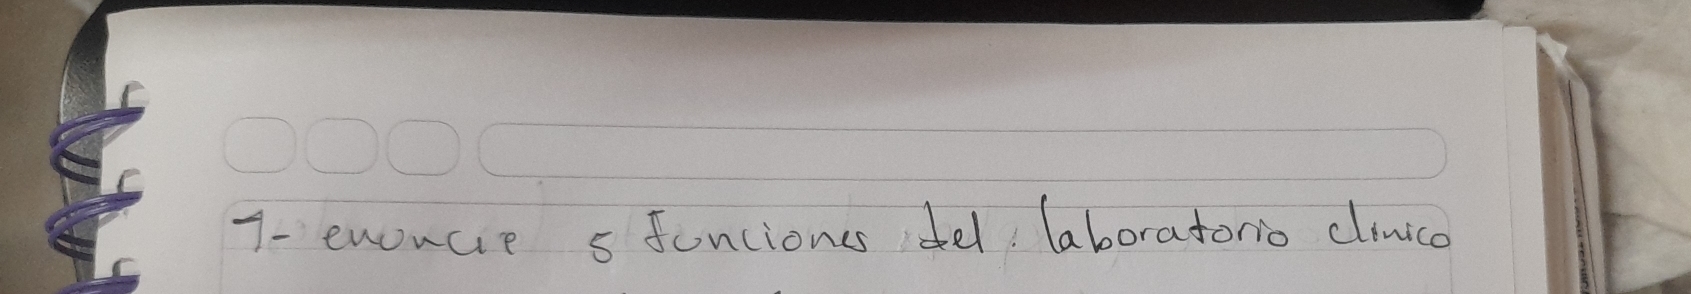 1- enuncie 5 funciones del laboratorio clinico